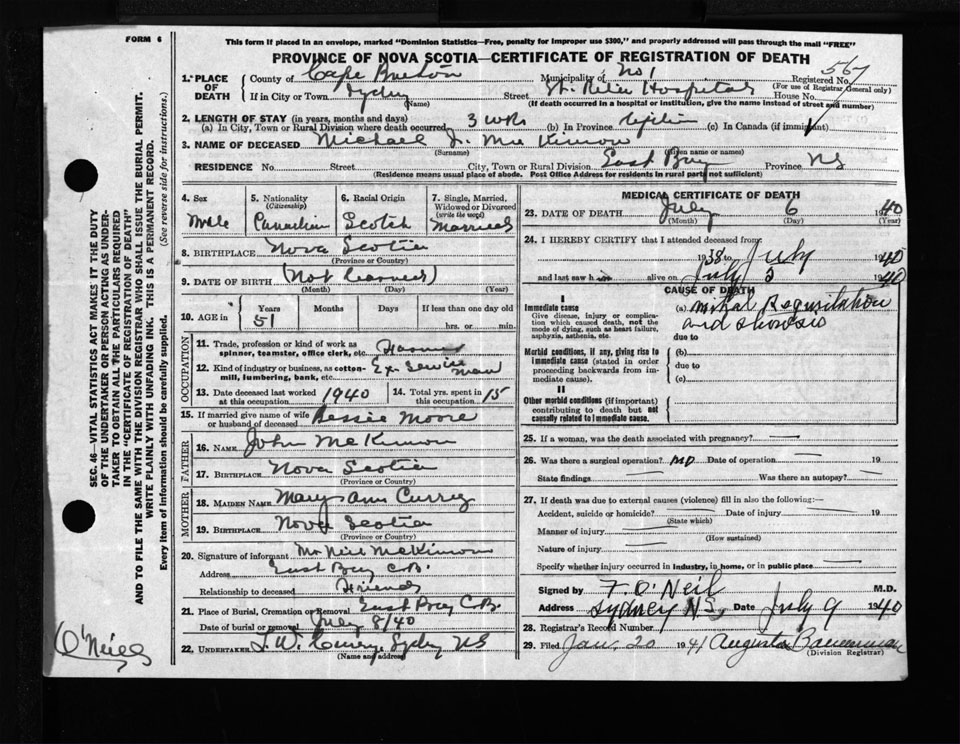 FORM 6
This form if placed in an envelope, marked "Dominion Statistics—Free, penalty for improper use $300," and properly addressed will pass through the mail "FREE"
PROVINCE OF NOVA SCOTIA—CERTIFICATE OF REGISTRATION OF DEATH
567
1. PLACE OF DEATH County of Cape Breton Municipality of No 1 Registered No. (For use of Registrar General only)
If in City or Town Sydney (Name) Street St. Rita Hospital House No.
(If death occurred in a hospital or institution, give the name instead of street and number)
2. LENGTH OF STAY (in years, months and days)
(a) In City, Town or Rural Division where death occurred 3 wks (b) In Province Life (c) In Canada (if immigrant)
3. NAME OF DECEASED Michael J. McKinnon
(Surname) (Given name or names)
RESIDENCE No. Street City, Town or Rural Division East Bay Province NS
(Residence means usual place of abode. Post Office Address for residents in rural parts not sufficient)
4. Sex Male
5. Nationality (Citizenship) Canadian
6. Racial Origin Scotish
7. Single, Married, Widowed or Divorced (write the word) Married
8. BIRTHPLACE Nova Scotia
(Province or Country)
9. DATE OF BIRTH (Not learned)
(Month) (Day) (Year)
10. AGE in Years 51 Months Days If less than one day old hrs. or min.
OCCUPATION
11. Trade, profession or kind of work as spinner, teamster, office clerk, etc. Farmer
12. Kind of industry or business, as cotton-mill, lumbering, bank, etc. Ex. Service man
13. Date deceased last worked at this occupation 1940
14. Total yrs. spent in this occupation 15
15. If married give name of wife or husband of deceased Bessie Moore
FATHER
16. NAME John McKinnon
17. BIRTHPLACE Nova Scotia
(Province or Country)
MOTHER
18. MAIDEN NAME Mary Ann Currey
19. BIRTHPLACE Nova Scotia
(Province or Country)
20. Signature of informant Mr Neil McKinnon
Address East Bay C.B.
Relationship to deceased Friend
21. Place of Burial, Cremation or Removal East Bay C.B.
Date of burial or removal July 8/40
22. UNDERTAKER T.W. Curry, Sydney NS
(Name and address)
MEDICAL CERTIFICATE OF DEATH
23. DATE OF DEATH July 6 1940
(Month) (Day) (Year)
24. I HEREBY CERTIFY that I attended deceased from
1938 to July 1940
and last saw h alive on July 3 1940
CAUSE OF DEATH
I
Immediate cause
Give disease, injury or complication which caused death, not the mode of dying, such as heart failure, asphyxia, asthenia, etc.
(a) mitral Regurgitation and stenosis
due to
Morbid conditions, if any, giving rise to immediate cause (stated in order proceeding backwards from immediate cause).
(b)
due to
(c)
II
Other morbid conditions (if important) contributing to death but not causally related to immediate cause.
25. If a woman, was the death associated with pregnancy?
26. Was there a surgical operation? no Date of operation 19
State findings Was there an autopsy?
27. If death was due to external causes (violence) fill in also the following:—
Accident, suicide or homicide? Date of injury 19
(State which)
Manner of injury
(How sustained)
Nature of injury
Specify whether injury occurred in industry, in home, or in public place
Signed by F. O'Neil M.D.
Address Sydney N.S. Date July 9 1940
28. Registrar's Record Number
29. Filed Jan. 20 1941 Augusta Bannerman
(Division Registrar)
SEC. 46—VITAL STATISTICS ACT MAKES IT THE DUTY
OF THE UNDERTAKER OR PERSON ACTING AS UNDER-
TAKER TO OBTAIN ALL THE PARTICULARS REQUIRED
IN THE "CERTIFICATE OF REGISTRATION OF DEATH"
AND TO FILE THE SAME WITH THE DIVISION REGISTRAR WHO SHALL ISSUE THE BURIAL PERMIT.
WRITE PLAINLY WITH UNFADING INK. THIS IS A PERMANENT RECORD.
Every item of information should be carefully supplied. (See reverse side for instructions.)
O'Neill